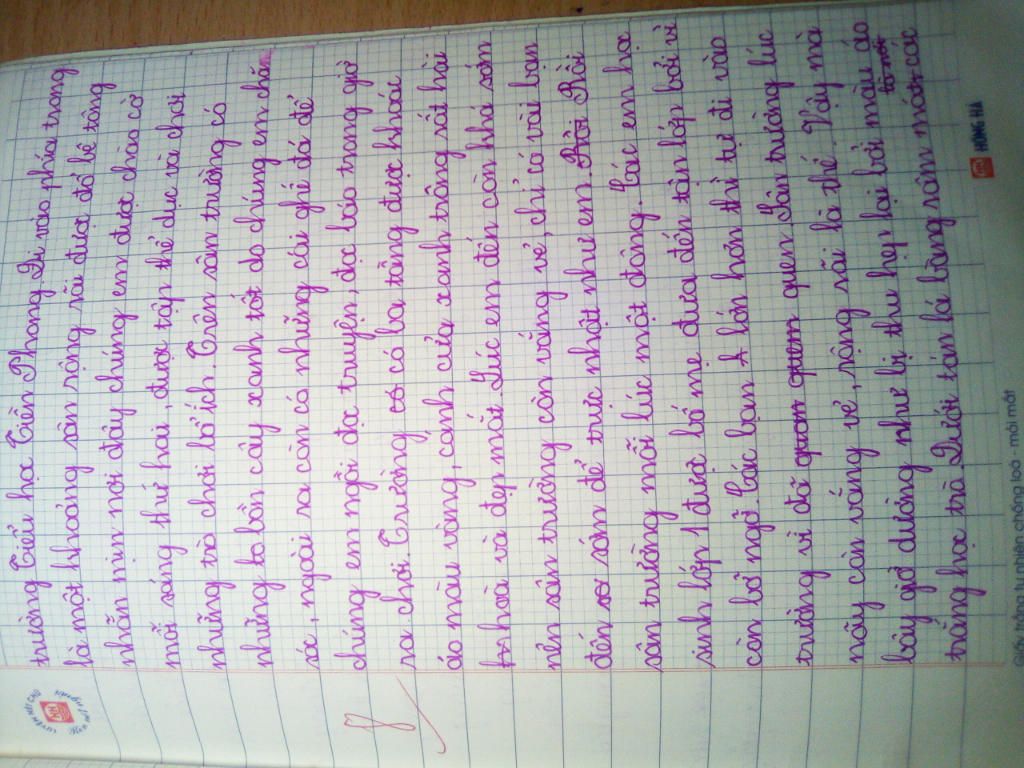 trường Tiểu học Tiền Phong. Đi vào phía trong
là một khoảng sân rộng rãi được đổ bê tông
nhẵn nịn nơi đây chúng em được chào cờ
mỗi sáng thứ hai, được tập thể dục và chơi
những trò chơi bổ ích. Trên sân trường có
những bồn cây xanh tốt do chúng em chăm
sóc, ngoài ra còn có những cái ghế đá để
chúng em ngồi đọc truyện, đọc báo trong giờ
ra chơi. Trường có ba tầng được khoác
áo màu vàng, cánh cửa xanh trông rất hài
hoà và đẹp mắt. Lúc em đến còn khá sớm
nên sân trường còn vắng vẻ, chỉ có vài bạn
đến sớm để trực nhật như em. Rồi
sân trường mỗi lúc một đông. Các em học
sinh lớp 1 được bố mẹ đưa đến tận lớp bởi vì
còn bỡ ngỡ. Các bạn lớn hơn thì tự đi vào
trường vì đã quen. Sân trường lúc
nãy còn vắng vẻ, rộng rãi là thế. Vậy mà
bây giờ dường như bị thu hẹp lại bởi màu áo
trắng học trò. Dưới tán lá bàng râm mát các
HỒNG HÀ
Giấy trắng tự nhiên chống loá - mỏi mắt